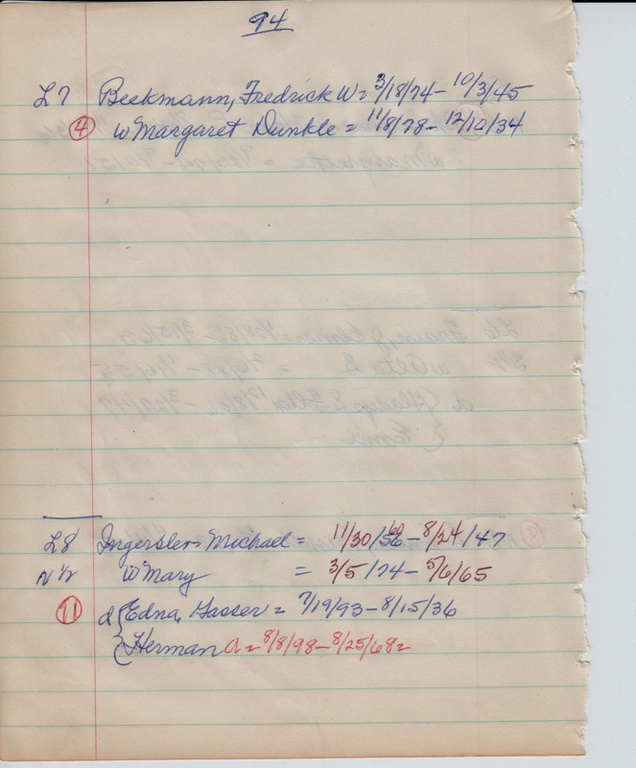 94
L7 Beekmann, Fredrick W = 3/18/74 - 10/3/45
④ w Margaret Dunkle = 11/8/78 - 12/10/34
L8 Ingersler Michael = 11/30/56 60 - 8/24/47
N ½ w Mary = 3/5/74 - 5/6/65
⑪ d { Edna, Gasser = 7/19/93 - 8/15/36
{ Herman A = 8/8/98 - 8/25/68 =